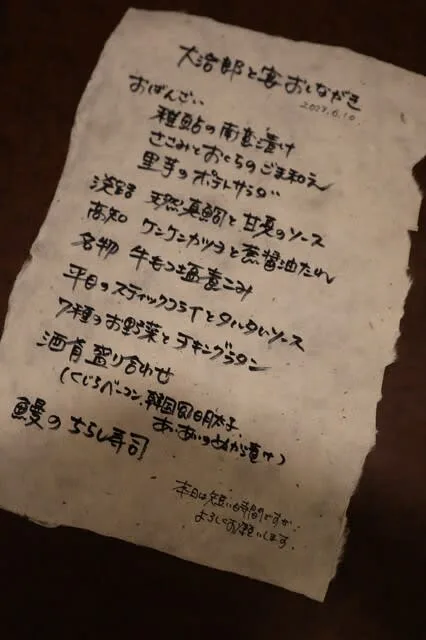 大治郎と宴おしながき
おばんざい
稚鮎の南蛮漬け
ささみとおくらのごま和え
里芋のポテトサラダ
淡路 天然真鯛と甘夏のソース
高知 ケンケンカツヲと薫醤油たれ
名物 牛もつ塩煮こみ
平目のスティックフライとタルタルソース
7種のお野菜とチキングラタン
酒肴盛り合わせ
(くじらベーコン、韓国風明太子
のぬか漬け)
鰻のちらし寿司
本日は短い時間ですが
よろしくお願いします。